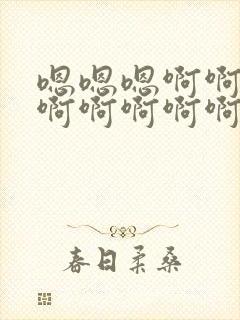 嗯嗯嗯啊啊
啊啊啊啊啊
春日柔桑